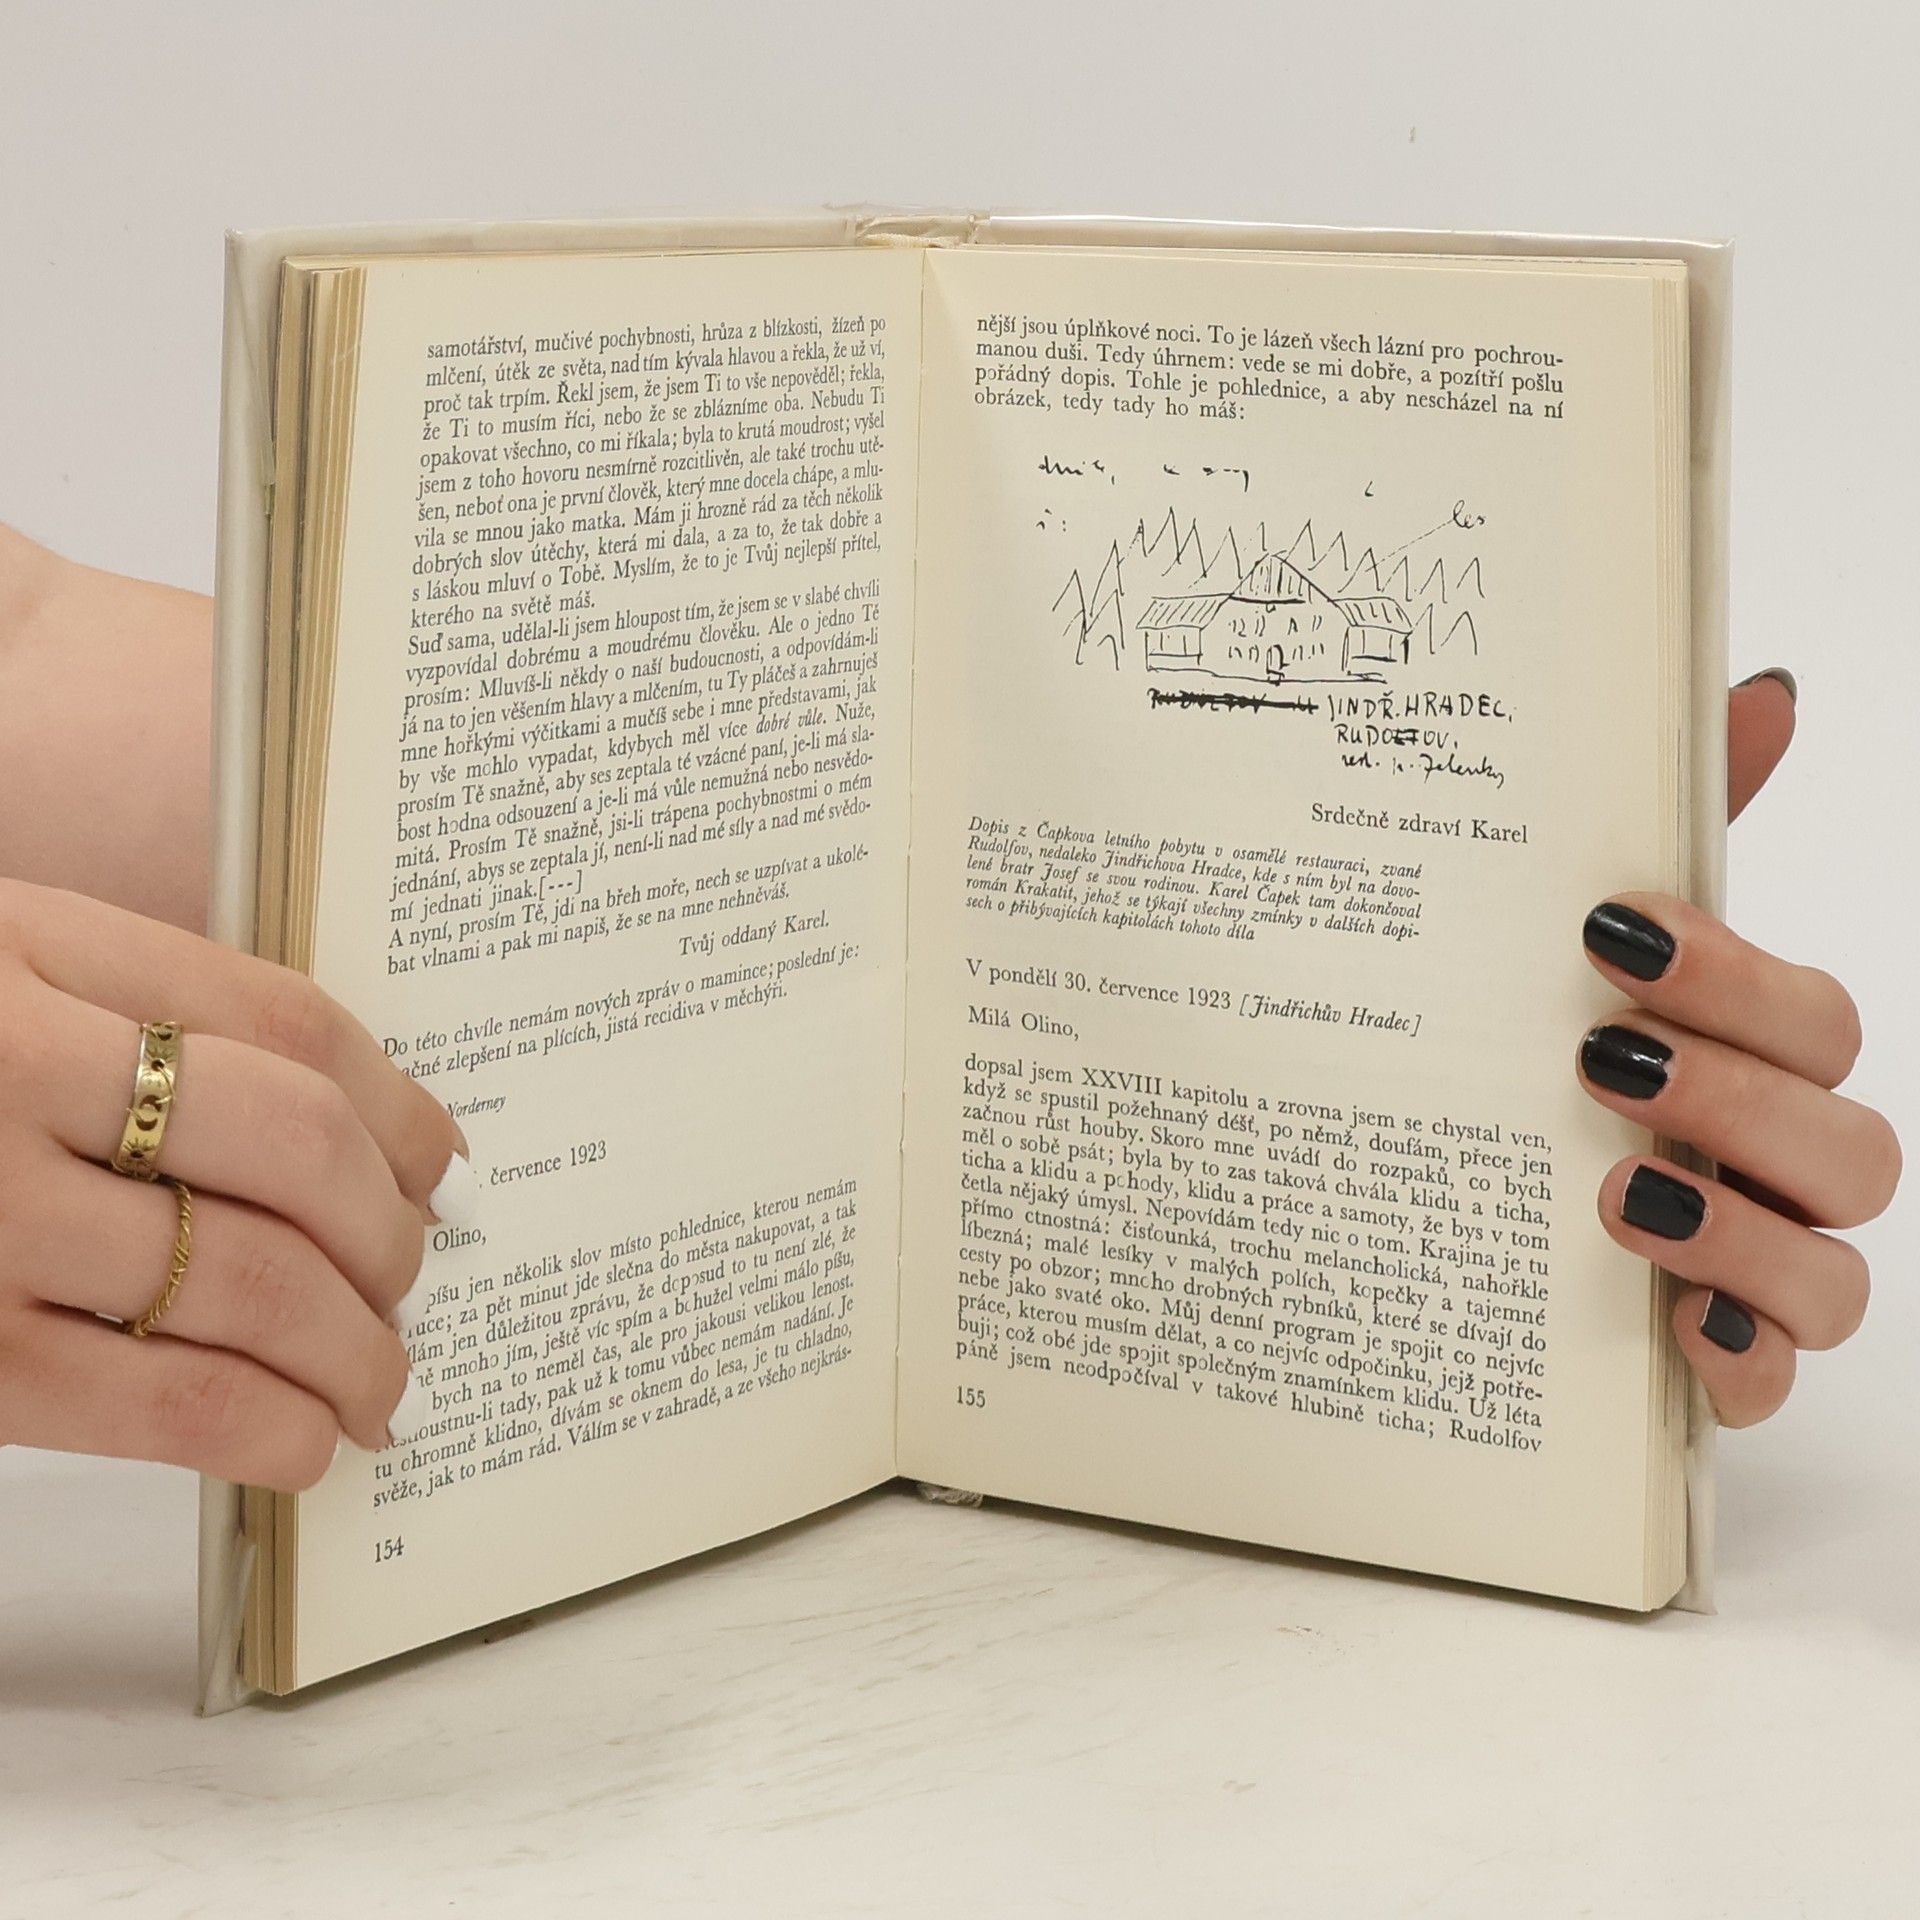 samotářství, mučivé pochybnosti, hrůza z blízkosti, žízeň po
mlčení, útěk ze světa, nad tím kývala hlavou a řekla, že už ví,
proč tak trpím. Řekl jsem, že jsem Ti to vše nepověděl; řekla,
že Ti to musím říci, nebo že se zblázníme oba. Nebudu Ti
opakovat všechno, co mi říkala; byla to krutá moudrost; vyšel
jsem z toho hovoru nesmírně rozcitlivěn, ale také trochu utě-
šen, neboť ona je první člověk, který mne docela chápe, a mlu-
vila se mnou jako matka. Mám ji hrozně rád za těch několik
dobrých slov útěchy, která mi dala, a za to, že tak dobře a
s láskou mluví o Tobě. Myslím, že to je Tvůj nejlepší přítel,
kterého na světě máš.
Suď sama, udělal-li jsem hloupost tím, že jsem se v slabé chvíli
vyzpovídal dobrému a moudrému člověku. Ale o jedno Tě
prosím: Mluvíš-li někdy o naší budoucnosti, a odpovídám-li
já na to jen věšením hlavy a mlčením, tu Ty pláčeš a zahrnuješ
mne hořkými výčitkami a mučíš sebe i mne představami, jak
by vše mohlo vypadat, kdybych měl více dobré vůle. Nuže,
prosím Tě snažně, aby ses zeptala té vzácné paní, je-li má sla-
bost hodna odsouzení a je-li má vůle nemužná nebo nesvědo-
mitá. Prosím Tě snažně, jsi-li trápena pochybnostmi o mém
jednání, abys se zeptala jí, není-li nad mé síly a nad mé svědo-
mí jednati jinak.[---]
A nyní, prosím Tě, jdi na břeh moře, nech se uzpívat a ukolé-
bat vlnami a pak mi napiš, že se na mne nehněváš.
Tvůj oddaný Karel.
Do této chvíle nemám nových zpráv o mamince; poslední je:
ačné zlepšení na plících, jistá recidiva v měchýři.
Norderney
. července 1923
Olino,
píšu jen několik slov místo pohlednice, kterou nemám
ruce; za pět minut jde slečna do města nakupovat, a tak
lám jen důležitou zprávu, že doposud to tu není zlé, že
ně mnoho jím, ještě víc spím a bohužel velmi málo píšu,
bych na to neměl čas, ale pro jakousi velikou lenost.
oustnu-li tady, pak už k tomu vůbec nemám nadání. Je
tu ohromně klidno, dívám se oknem do lesa, je tu chladno,
svěže, jak to mám rád. Válím se v zahradě, a ze všeho nejkrás-
154
nější jsou úplňkové noci. To je lázeň všech lázní pro pochrou-
manou duši. Tedy úhrnem: vede se mi dobře, a pozítří pošlu
pořádný dopis. Tohle je pohlednice, a aby nescházel na ní
obrázek, tedy tady ho máš:
les
JINDŘ. HRADEC,
RUDOLFOV.
Srdečně zdraví Karel
Dopis z Čapkova letního pobytu v osamělé restauraci, zvané
Rudolfov, nedaleko Jindřichova Hradce, kde s ním byl na dovo-
lené bratr Josef se svou rodinou. Karel Čapek tam dokončoval
román Krakatit, jehož se týkají všechny zmínky v dalších dopi-
sech o přibývajících kapitolách tohoto díla
V pondělí 30. července 1923 [Jindřichův Hradec]
Milá Olino,
dopsal jsem XXVIII kapitolu a zrovna jsem se chystal ven,
když se spustil požehnaný déšť, po němž, doufám, přece jen
začnou růst houby. Skoro mne uvádí do rozpaků, co bych
měl o sobě psát; byla by to zas taková chvála klidu a ticha,
ticha a klidu a pohody, klidu a práce a samoty, že bys v tom
četla nějaký úmysl. Nepovídám tedy nic o tom. Krajina je tu
přímo ctnostná: čisťounká, trochu melancholická, nahořkle
líbezná; malé lesíky v malých polích, kopečky a tajemné
cesty po obzor; mnoho drobných rybníků, které se dívají do
nebe jako svaté oko. Můj denní program je spojit co nejvíc
práce, kterou musím dělat, a co nejvíc odpočinku, jejž potře-
buji; což obé jde spojit společným znamínkem klidu. Už léta
páně jsem neodpočíval v takové hlubině ticha; Rudolfov
155